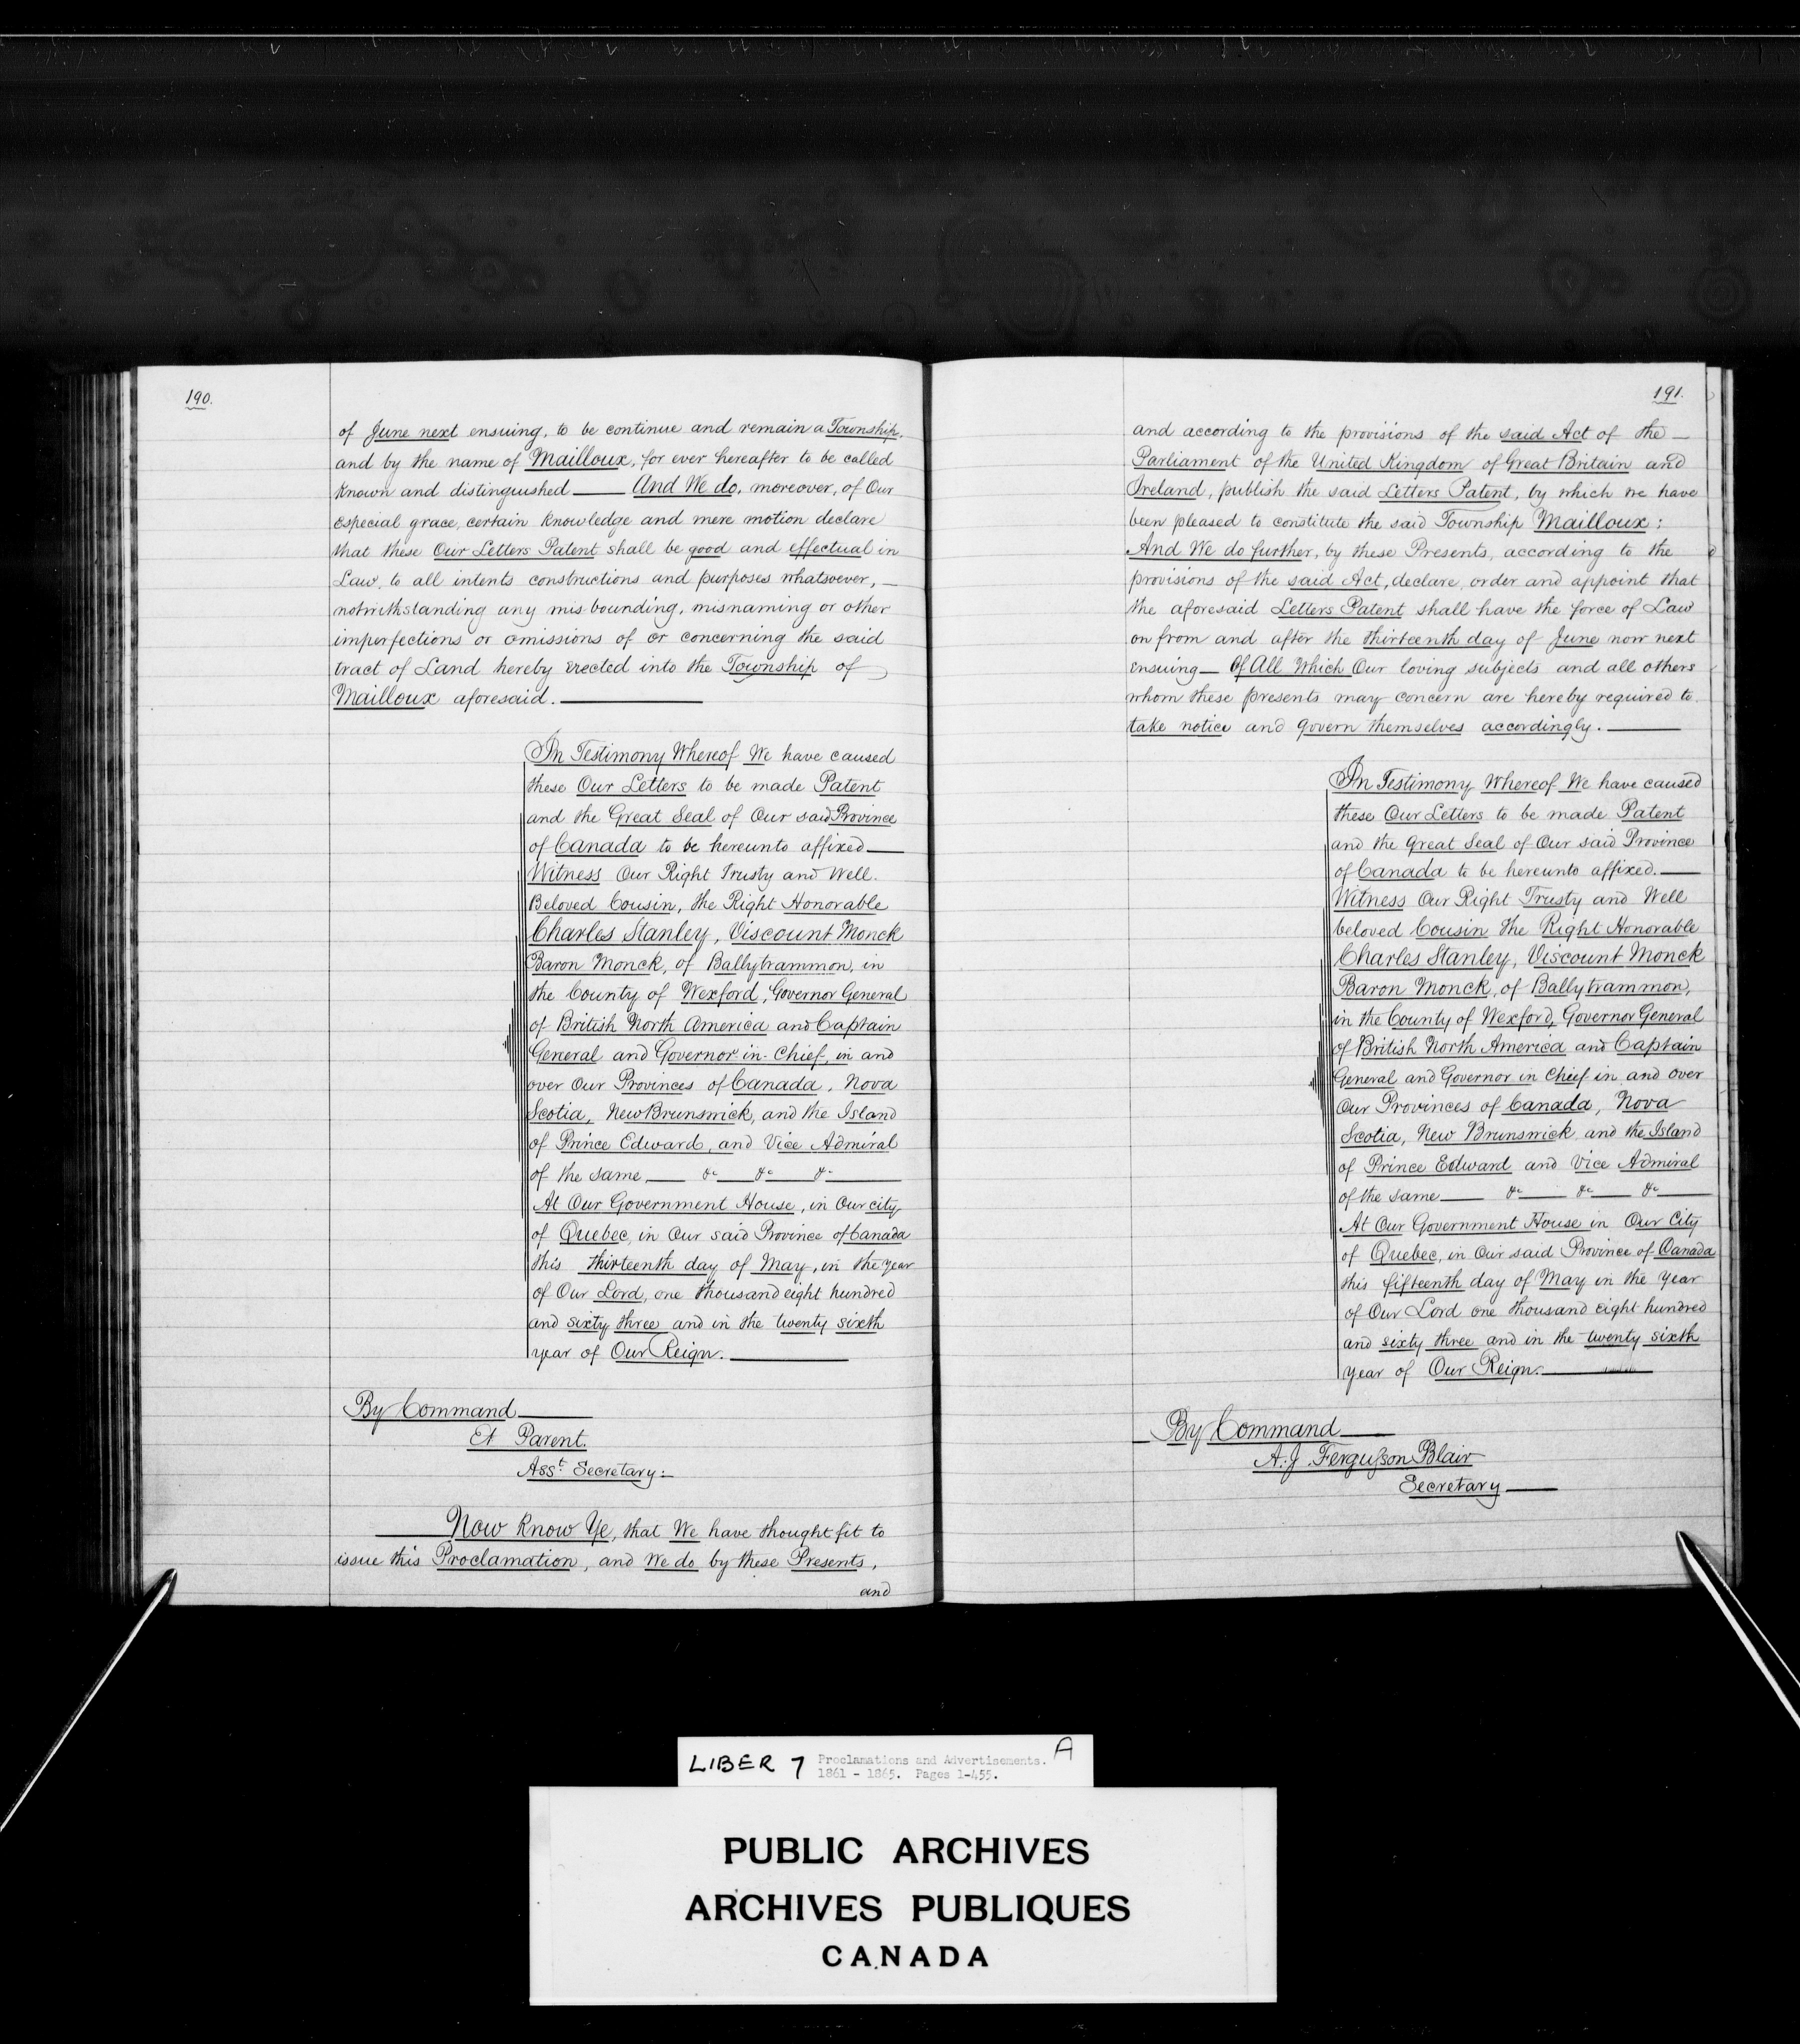 190.
of June next ensuing, to be continue and remain a Township,
and by the name of Mailloux, for ever hereafter to be called
known and distinguished — And We do, moreover, of Our
especial grace, certain knowledge and mere motion declare
that these Our Letters Patent shall be good and effectual in
Law, to all intents constructions and purposes whatsoever, —
notwithstanding any mis-bounding, misnaming or other
imperfections or omissions of or concerning the said
tract of Land hereby erected into the Township of
Mailloux aforesaid. —
In Testimony Whereof We have caused
these Our Letters to be made Patent
and the Great Seal of Our said Province
of Canada to be hereunto affixed —
Witness Our Right Trusty and Well.
Beloved Cousin, the Right Honorable
Charles Stanley, Viscount Monck
Baron Monck, of Ballytrammon, in
the County of Wexford, Governor General
of British North America and Captain
General and Governor-in-Chief, in and
over Our Provinces of Canada, Nova
Scotia, New Brunswick, and the Island
of Prince Edward, and Vice Admiral
of the same — &c — &c — &c —
At Our Government House, in Our city
of Quebec, in Our said Province of Canada
this thirteenth day of May, in the year
of Our Lord, one thousand eight hundred
and sixty three and in the twenty sixth
year of Our Reign. —
By Command —
Et Parent.
Asst Secretary:—
— Now Know Ye, that We have thought fit to
issue this Proclamation, and We do by these Presents,
and
191.
and according to the provisions of the said Act of the —
Parliament of the United Kingdom of Great Britain and
Ireland, publish the said Letters Patent, by which we have
been pleased to constitute the said Township Mailloux:
And We do further, by these Presents, according to the
provisions of the said Act, declare, order and appoint that
the aforesaid Letters Patent shall have the force of Law
on from and after the thirteenth day of June now next
ensuing — Of All Which Our loving subjects and all others
whom these presents may concern are hereby required to
take notice and govern themselves accordingly. —
In Testimony Whereof We have caused
these Our Letters to be made Patent
and the Great Seal of Our said Province
of Canada to be hereunto affixed. —
Witness Our Right Trusty and Well
beloved Cousin the Right Honorable
Charles Stanley, Viscount Monck
Baron Monck, of Ballytrammon,
in the County of Wexford, Governor General
of British North America and Captain
General and Governor in Chief in and over
Our Provinces of Canada, Nova
Scotia, New Brunswick and the Island
of Prince Edward and Vice Admiral
of the same — &c — &c — &c —
At Our Government House in Our City
of Quebec, in Our said Province of Canada
this fifteenth day of May in the year
of Our Lord one thousand eight hundred
and sixty three and in the twenty sixth
year of Our Reign. —
By Command —
A. J. Fergusson Blair
Secretary —
LIBER 7 Proclamations and Advertisements. A
1861 - 1865. Pages 1-455.
PUBLIC ARCHIVES
ARCHIVES PUBLIQUES
CANADA